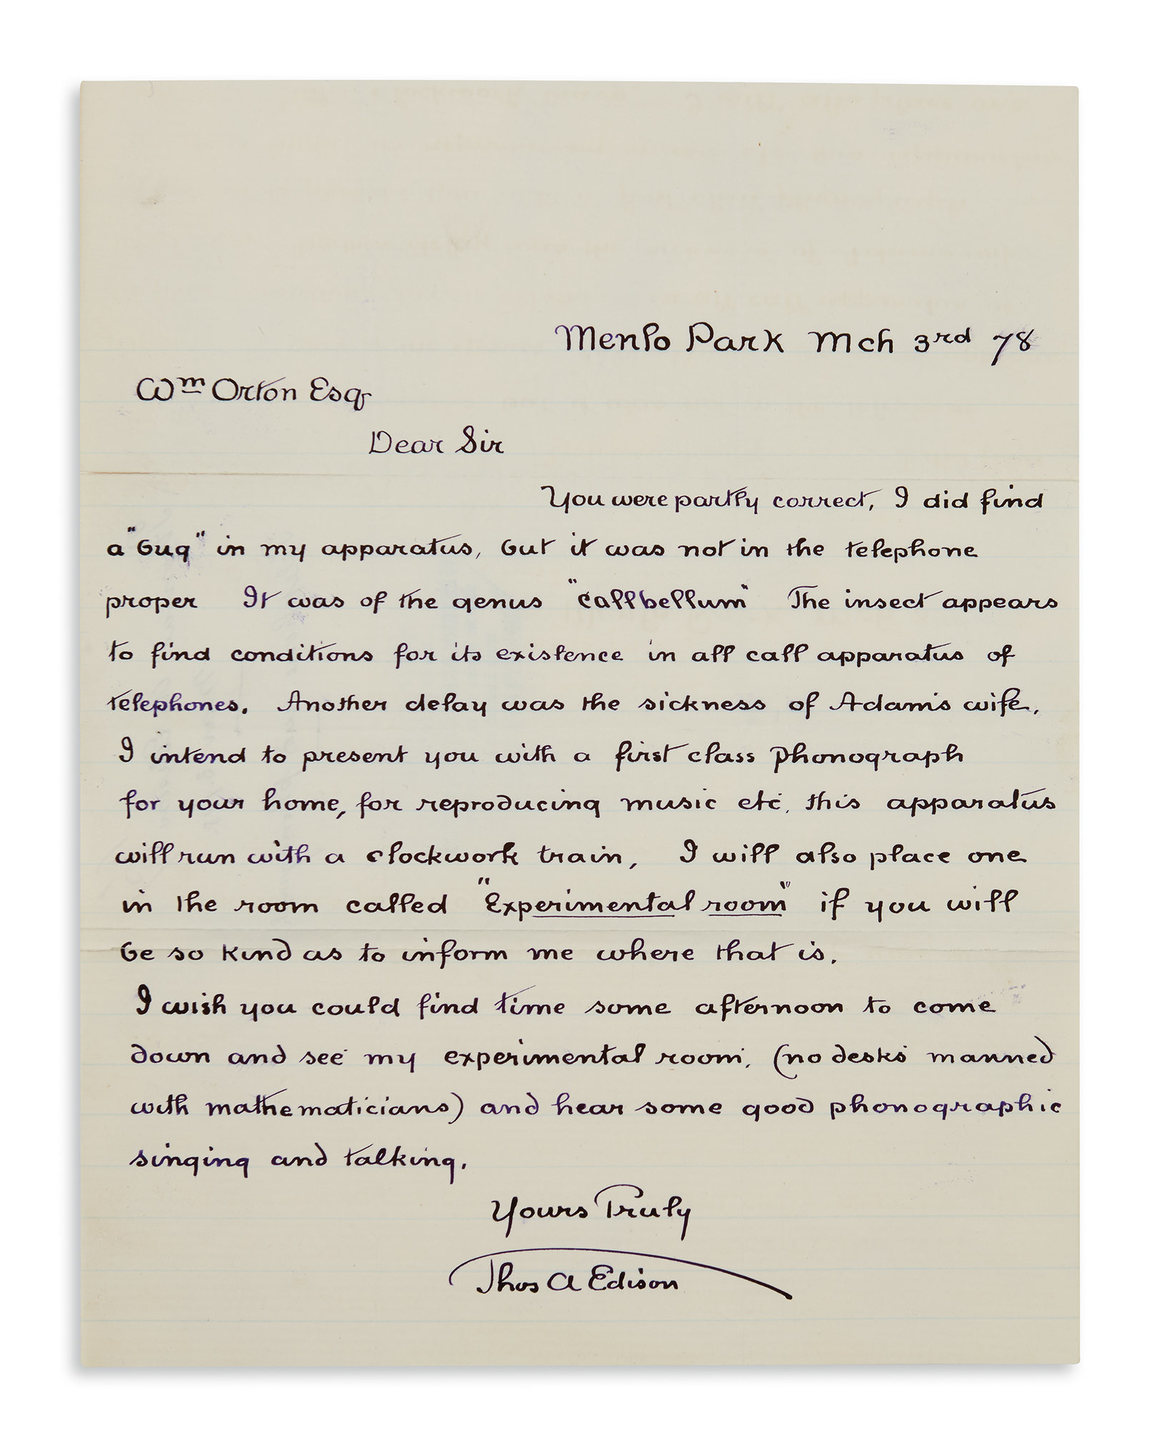 Menlo Park Mch 3rd 78
Wm Orton Esq
Dear Sir
You were partly correct, I did find
a "bug" in my apparatus, but it was not in the telephone
proper It was of the genus "callbellum" The insect appears
to find conditions for its existence in all call apparatus of
telephones. Another delay was the sickness of Adams wife,
I intend to present you with a first class phonograph
for your home, for reproducing music etc. this apparatus
will run with a clockwork train, I will also place one
in the room called "Experimental room" if you will
be so kind as to inform me where that is.
I wish you could find time some afternoon to come
down and see my experimental room, (no desks manned
with mathematicians) and hear some good phonographic
singing and talking,
Yours Truly
Thos A Edison